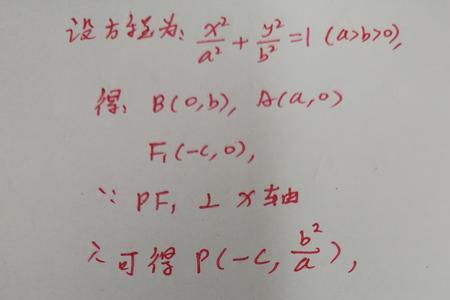 设方程为: x²/a² + y²/b² = 1 (a>b>0),
得: B(0,b), A(a,0)
F₁(-c,0),
∵ PF₁ ⊥ x轴
∴ 可得 P(-c, b²/a),